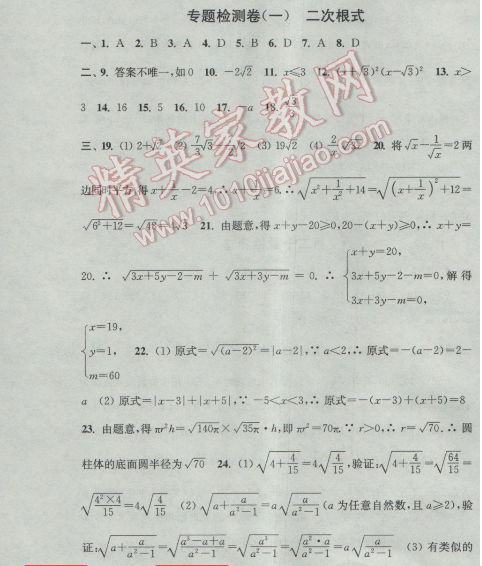 专题检测卷(一) 二次根式
一、1. A 2. B 3. A 4. D 5. B 6. D 7. A 8. D
二、9. 答案不唯一,如0 10. -2√2 11. x≤3 12. (x+√3)²(x-√3)² 13. x>
3 14. 16 15. 5 16. 10 17. 18.
三、19. (1) (2) (3) 19√2 (4) 20. 将√x-1/√x=2两
边同时平方,得x+1/x-2=4,∴x+1/x=6.∴√(x²+1/x²+14)=√((x+1/x)²+12)=
√(6²+12)=√48=4√3 21. 由题意,得x+y-20≥0,20-(x+y)≥0,∴x+y=
20. ∴ √(3x+5y-2-m) + √(3x+3y-m) = 0. ∴ {x+y=20, 3x+5y-2-m=0, 3x+3y-m=0, 解得
{x=19, y=1, m=60 22. (1) 原式=√(a-2)²=|a-2|,∵a<2,∴原式=-(a-2)=2-
a (2) 原式=|x-3|+|x+5|,∵-5<x<3,∴原式=-(x-3)+(x+5)=8
23. 由题意,得πr²h=√140π×√35π·h,即πr²=70π.∵r>0,∴r=√70.∴圆
柱体的底面圆半径为√70 24. (1) √(4+4/15)=4√(4/15),验证:√(4+4/15)=√(64/15)=
√(4²×4/15)=4√(4/15) (2) √(a+a/(a²-1))=a√(a/(a²-1))(a为任意自然数,且a≥2),验
证:√(a+a/(a²-1))=√((a³-a+a)/(a²-1))=√(a³/(a²-1))=√(a²·a/(a²-1))=a√(a/(a²-1)) (3) 有类似的
精英家教网
www.1010jiajiao.com